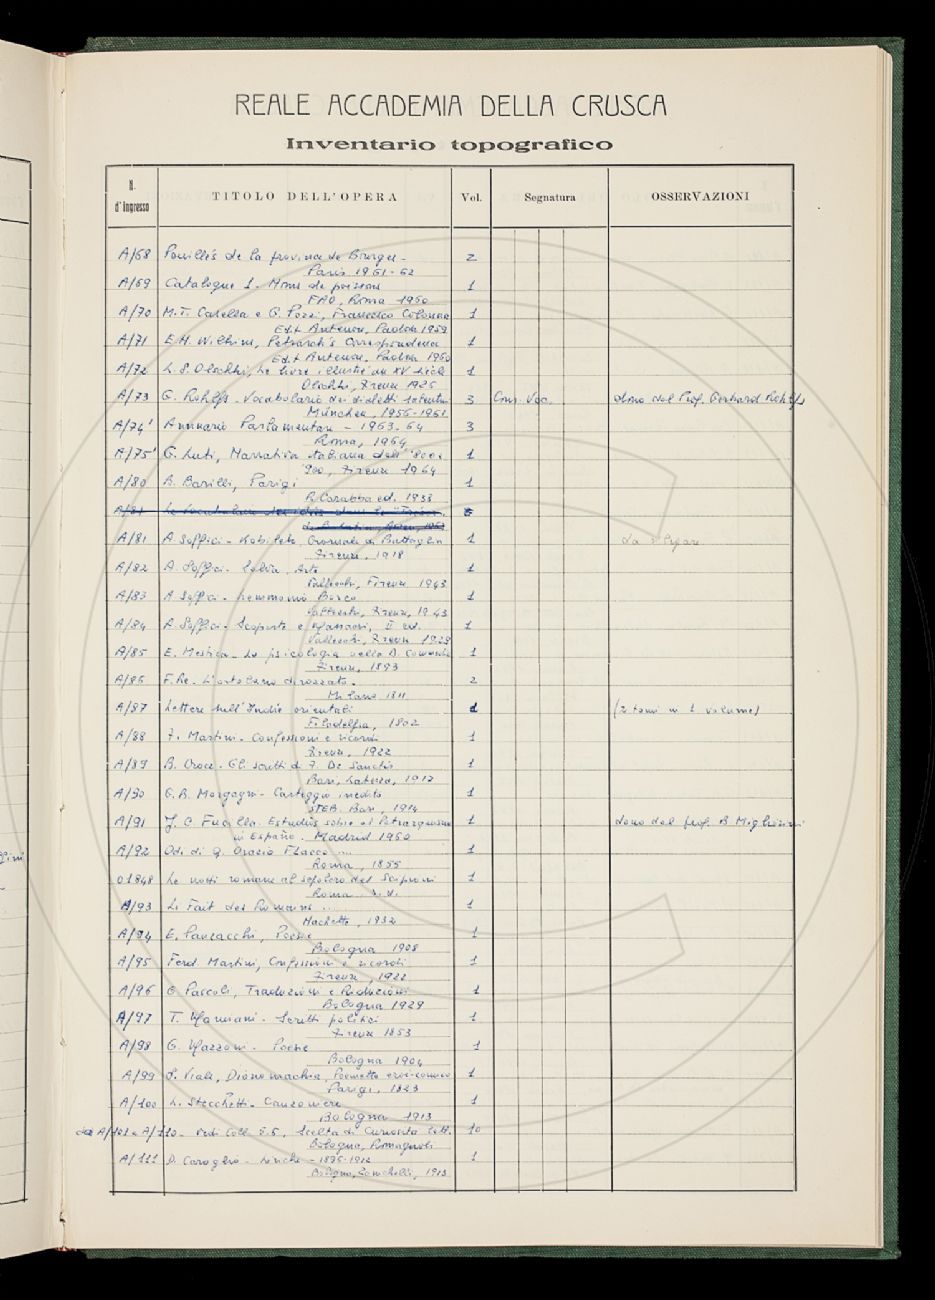 REALE ACCADEMIA DELLA CRUSCA
Inventario topografico
N. d'ingresso TITOLO DELL'OPERA Vol. Segnatura OSSERVAZIONI
A/68 Pouillés de la province de Bourges - 2
Paris 1961-62
A/69 Catalogue 1. Noms de poissons 1
FAO, Roma 1960
A/70 M.T. Casella e G. Pozzi, Francesco Colonna 1
Edit Antenore, Padova 1959
A/71 E.H. Wilkins, Petrarch's Correspondence 1
Edit Antenore, Padova 1960
A/72 L.S. Olschki, Le livre illustré au XV siècle 1
Olschki, Firenze 1926
A/73 G. Rohlfs - Vocabolario dei dialetti salentini 3 Cons. Voc. dono del Prof. Gerhard Rohlfs
München, 1956-1961
A/74' Annuario Parlamentare - 1963-64 3
Roma, 1964
A/75' G. Luti, Narrativa italiana dell'800 e 1
'900, Firenze 1964
A/80 B. Barilli, Parigi 1
R. Carabba ed. 1938
A/81
A/81 A. Soffici - Kobilek, Giornale di Battaglia 1
Firenze, 1918
A/82 A. Soffici - Selva, Arte 1
Vallecchi, Firenze 1943
A/83 A. Soffici - Lemmonio Boreo 1
Vallecchi, Firenze, 1943
A/84 A. Soffici - Scoperte e Massacri, II ed. 1
Vallecchi, Firenze 1929
A/85 E. Mestica - La psicologia nella D. Commedia 1
Firenze, 1893
A/86 F. Re - L'ortolano dirozzato - 2
Milano 1811
A/87 Lettere sull'Indie orientali (2 tomi in 1 volume)
Filadelfia, 1802
A/88 F. Martini - Confessioni e ricordi 1
Firenze, 1922
A/89 B. Croce - Gli scritti di F. De Sanctis 1
Bari, Laterza, 1917
A/90 G.B. Morgagni - Carteggio inedito 1
STEB. Bari, 1914
A/91 J. G. Fucilla. Estudios sobre el Petrarquismo 1 dono del prof. B Migliorini
in España - Madrid 1960
A/92 Odi di Q. Orazio Flacco ... 1
Roma, 1855
01848 Le notti romane al sepolcro dei Scipioni 1
Roma s.d.
A/93 Li Fait des Romains ... 1
Hachette, 1932
A/94 E. Panzacchi, Poesie 1
Bologna 1908
A/95 Ferd. Martini, Confessioni e ricordi 1
Firenze, 1922
A/96 G Pascoli, Traduzioni e Riduzioni 1
Bologna 1929
A/97 T. Mamiani - Scritti politici 1
Firenze 1853
A/98 G. Mazzoni - Poesie 1
Bologna 1904
A/99 S. Viale, Dionomachia, Poemetto eroi-comico 1
Parigi, 1823
A/100 L. Stecchetti - Canzoniere 1
Bologna 1913
da A/101 a A/110 - vedi Coll. S.5, Scelta di Curiosità lett. 10
Bologna, Romagnoli
A/111 D. Caroglio - Liriche - 1895-1912 1
Bologna, Zanichelli, 1913